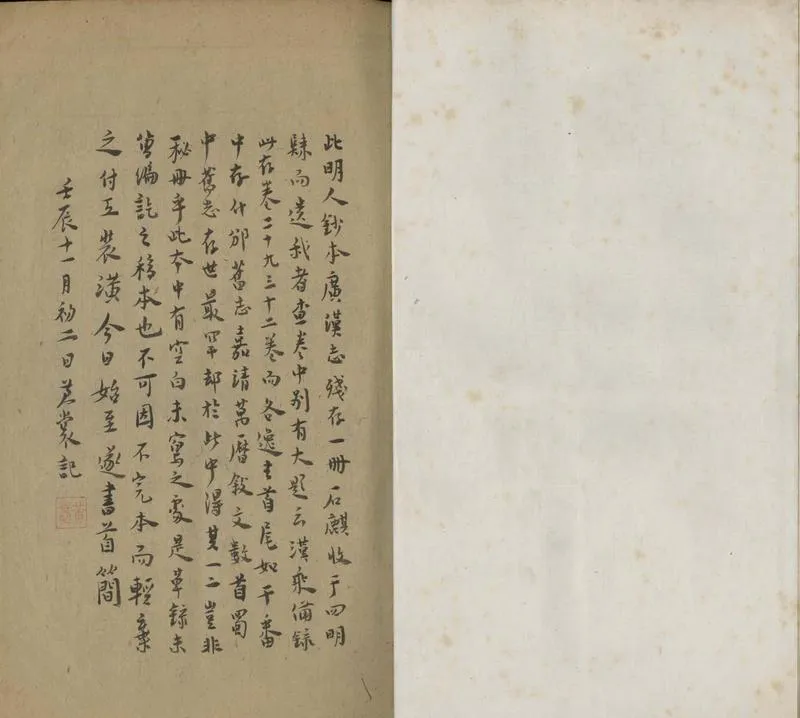 此明人鈔本廣漢志殘存一冊石麒收于四明
歸而遺我者查卷中別有大題云漢乘備錄
此存卷二十九三十二卷而各逸去首尾如干番
中存什邡舊志嘉請萬曆敘文數首蜀
中舊志存世最罕却於此中得其一二豈非
秘冊乎此本中有空白未寫之處是草錄未
曾編訖之稿本也不可因不完本而輕棄
之付工裝潢今日始至遂書首簡
壬辰十一月初二日 裳記